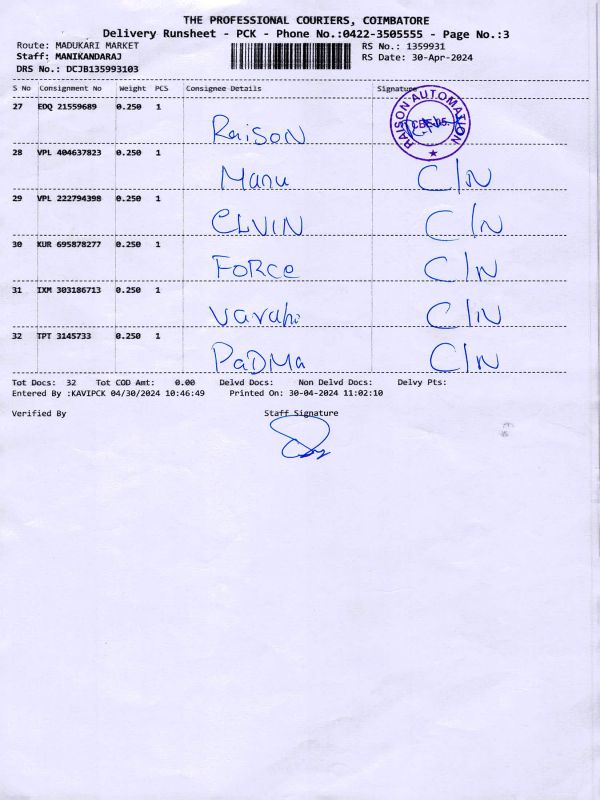 THE PROFESSIONAL COURIERS, COIMBATORE
Delivery Runsheet - PCK - Phone No.:0422-3505555 - Page No.:3
Route: MADUKARI MARKET RS No.: 1359931
Staff: MANIKANDARAJ RS Date: 30-Apr-2024
DRS No.: DCJB135993103
S No Consignment No Weight PCS Consignee Details Signature
27 EDQ 21559689 0.250 1 Raison RAISON AUTOMATION
28 VPL 404637823 0.250 1 Manu C/N
29 VPL 222794398 0.250 1 ELVIN C/N
30 KUR 695878277 0.250 1 FORCE C/N
31 IXM 303186713 0.250 1 C/N
32 TPT 3145733 0.250 1 PaDMa C/N
Tot Docs: 32 Tot COD Amt: 0.00 Delvd Docs: Non Delvd Docs: Delvy Pts:
Entered By :KAVIPCK 04/30/2024 10:46:49 Printed On: 30-04-2024 11:02:10
Verified By Staff Signature